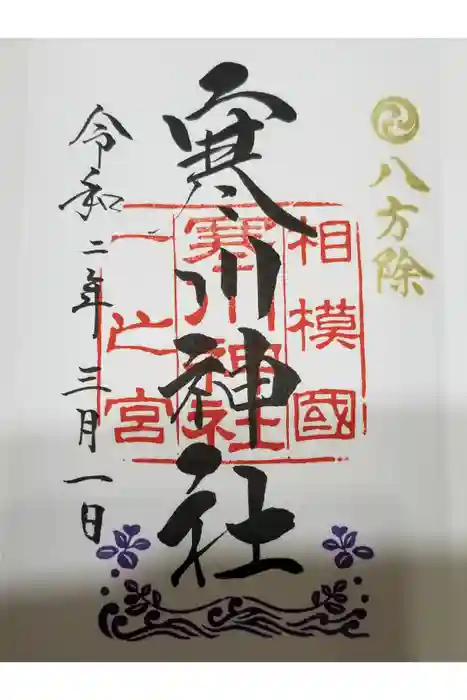 八方除
相模國
寒川神社
一之宮
寒川神社
令和二年三月一日